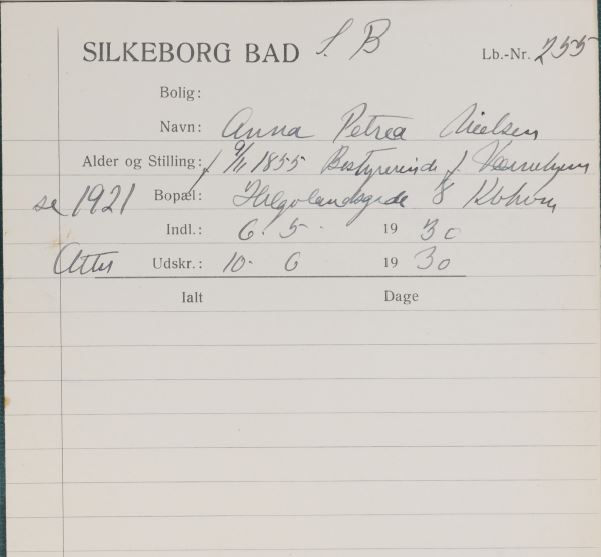 SILKEBORG BAD S. B Lb.-Nr. 255
Bolig:
Navn: Anna Petrea Nielsen
Alder og Stilling: f 9/11 1855 Bestyrerinde f. Værnehjem
se 1921 Bopæl: Helgolandsgade 8 Kbhvn
Indl.: 6. 5. 19 30
Attes Udskr.: 10. 6 19 30
Ialt Dage